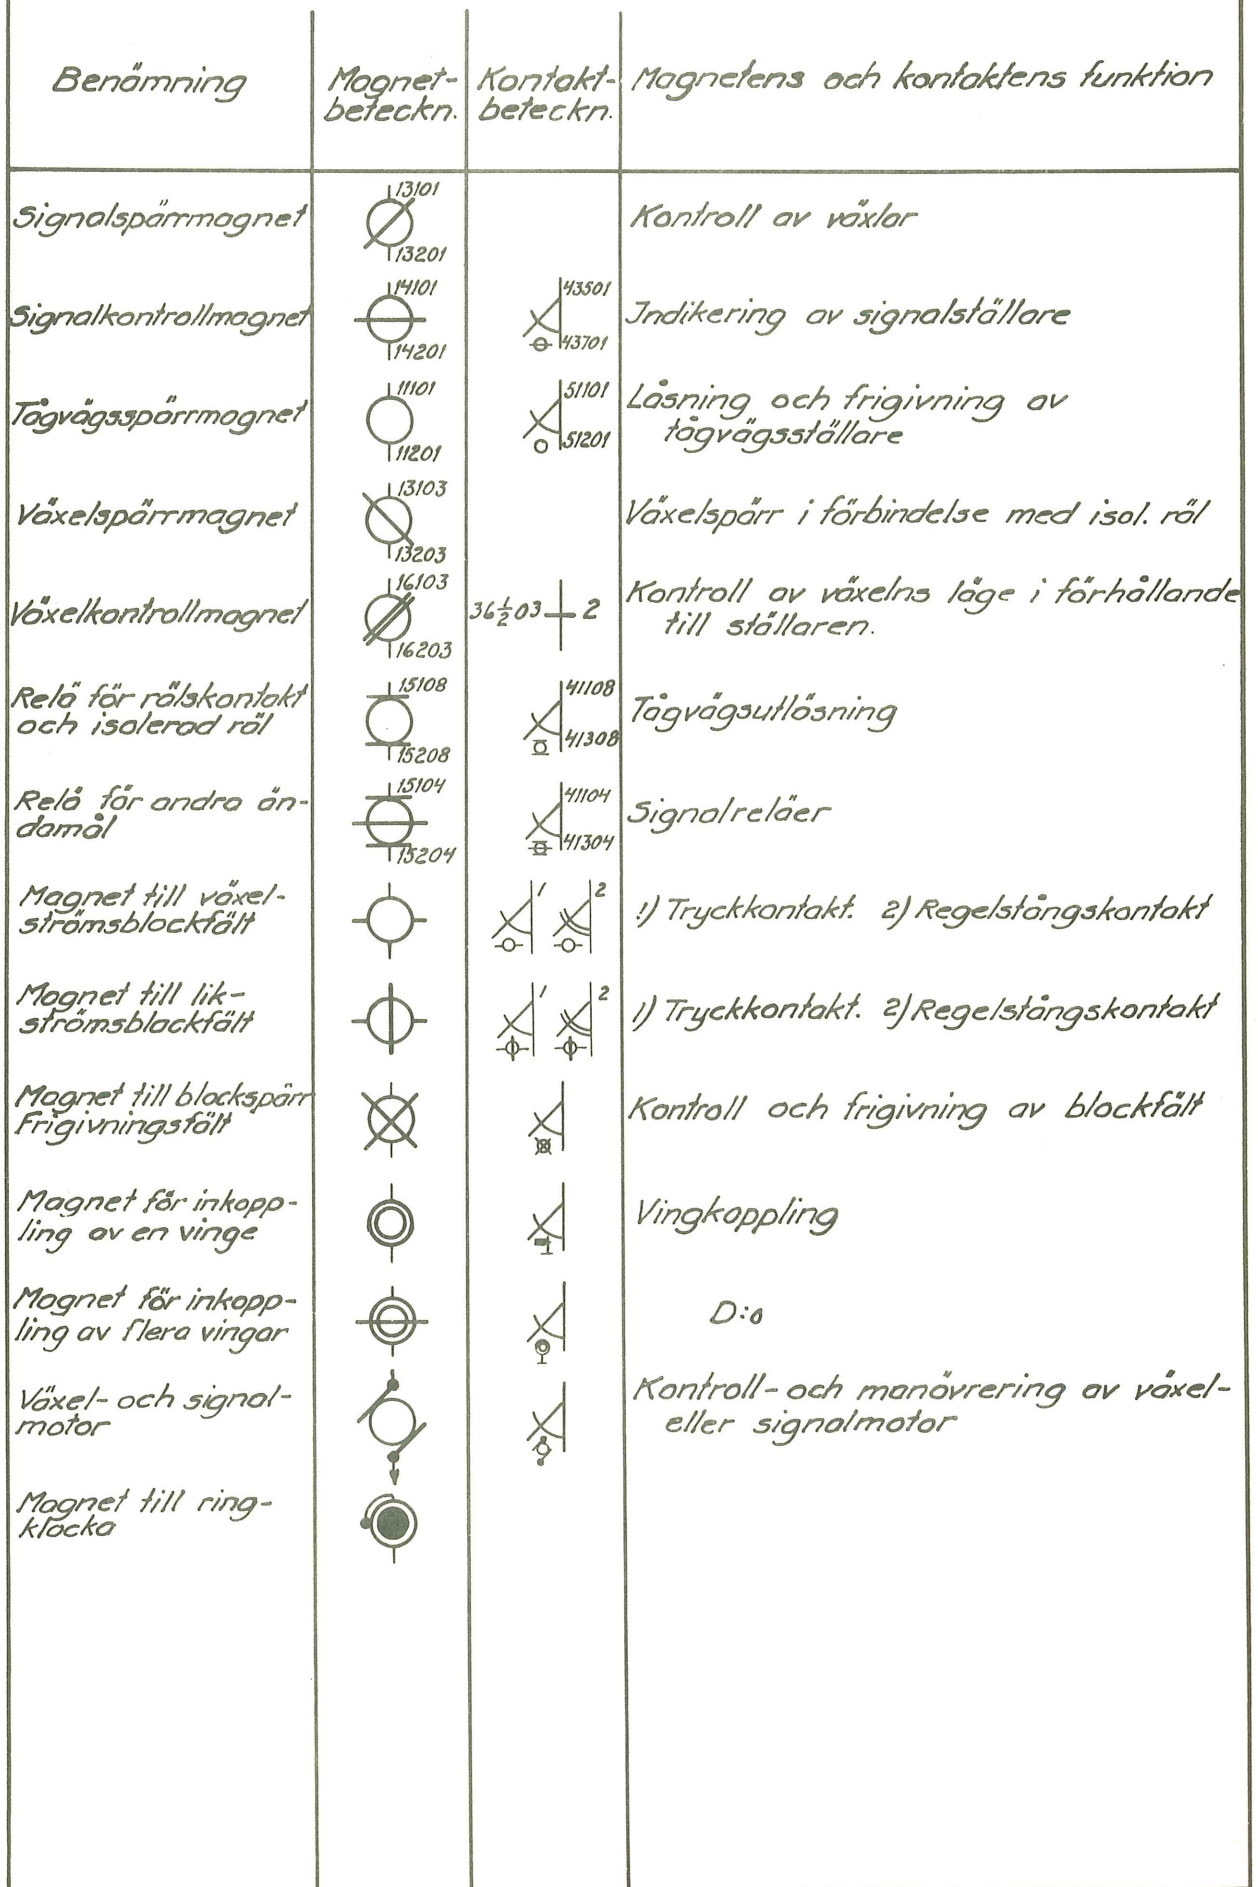 Benämning
Magnet-
beteckn.
Kontakt-
beteckn.
Magnetens och kontaktens funktion
Signalspärrmagnet
13101
13201
Kontroll av växlar
Signalkontrollmagnet
14101
14201
43501
43701
Indikering av signalställare
Tågvägsspärrmagnet
11101
11201
51101
51201
Låsning och frigivning av
tågvägsställare
Växelspärrmagnet
13103
13203
Växelspärr i förbindelse med isol. räl
Växelkontrollmagnet
16103
16203
36½03 2
Kontroll av växelns läge i förhållande
till ställaren.
Relä för rälskontakt
och isolerad räl
15108
15208
41108
41308
Tågvägsutlösning
Relä för andra än-
damål
15104
15204
41104
41304
Signalreläer
Magnet till växel-
strömsblockfält
1 2
1) Tryckkontakt. 2) Regelstångskontakt
Magnet till lik-
strömsblockfält
1 2
1) Tryckkontakt. 2) Regelstångskontakt
Magnet till blockspärr
Frigivningsfält
Kontroll och frigivning av blockfält
Magnet för inkopp-
ling av en vinge
Vingkoppling
Magnet för inkopp-
ling av flera vingar
D:o
Växel- och signal-
motor
Kontroll- och manövrering av växel-
eller signalmotor
Magnet till ring-
klocka